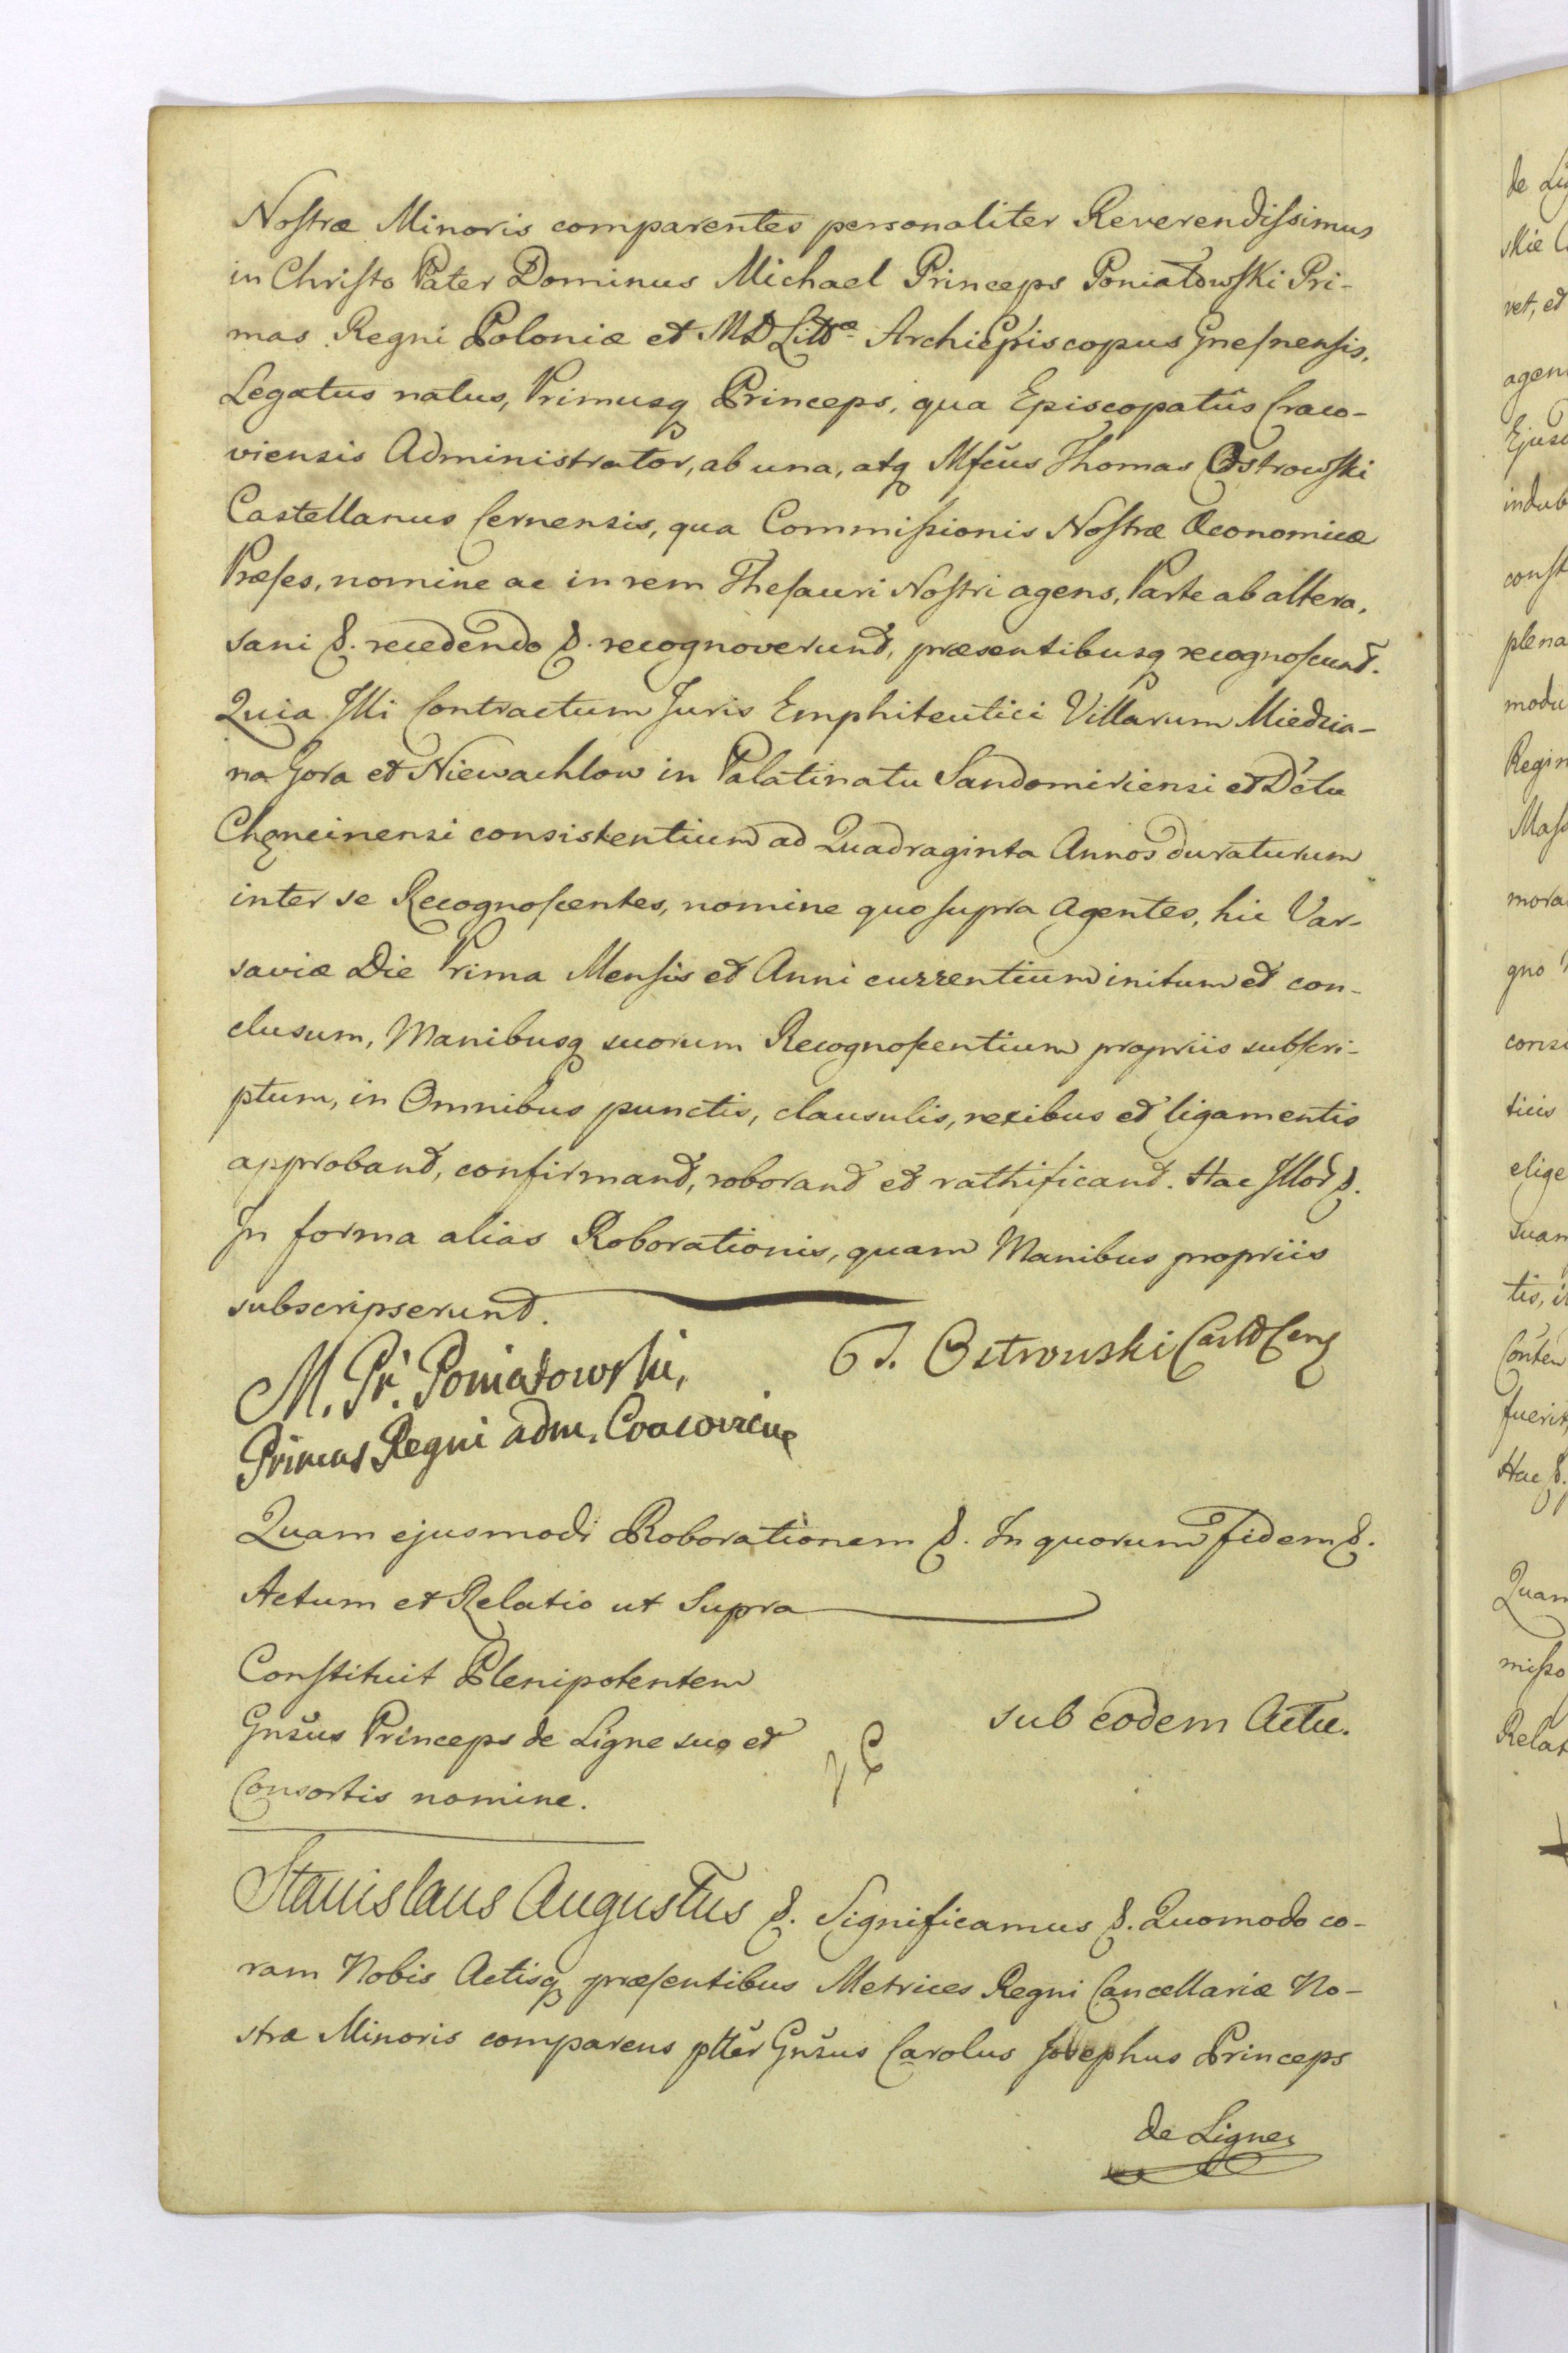 Noſtræ Minoris comparentes personaliter Reverendiſsimus
in Chriſto Pater Dominus Michael Princeps Poniatowſki Pri-
mas Regni Poloniæ et MD Littæ Archiepiscopus Gneſnenſis,
Legatus natus, Primusq Princeps, qua Episcopatûs Craco-
viensis Administrator, ab una, atq Mfcus Thomas Ostrowſki
Castellanus Cernensis, qua Commiſsionis Noſtræ Œconomicæ
Præſes, nomine ac in rem Theſauri Noſtri agens, Parte ab altera,
sani &. recedendo &. recognoverunt, præsentibusq recognoſcunt.
Quia Illi Contractum Juris Emphiteutici Villarum Miedzia-
na Gora et Niewachlow in Palatinatu Sandomiriensi et Dctu
Chęncinensi consistentium ad Quadraginta Annos duraturum
inter se Recognoſcentes, nomine quo ſupra Agentes, hic Var-
saviæ Die Prima Menſis et Anni currentium initum et con-
clusum, Manibusq suorum Recognoſcentium propriis subſcri-
ptum, in Omnibus punctis, clausulis, nexibus et ligamentis
approbant, confirmant, roborant et rathificant. Hac Illor &.
In forma alias Roborationis, quam Manibus propriis
subscripserunt.
T. Ostrowski Castel Cerń
M. Pr. Poniatowski,
Primas Regni adm. Cracovien
Quam ejusmodi Roborationem &. In quorum fidem &.
Actum et Relatio ut Supra
Conſtituit Plenipotentem
Gnsus Princeps de Ligne suo et
Consortis nomine.
sub eodem Actu.
Stanislaus Augustus &. Significamus &. Quomodo co-
ram Nobis Actisq præſentibus Metrices Regni Cancellariæ No-
stræ Minoris comparens pltter Gnsus Carolus Josephus Princeps
de Ligne